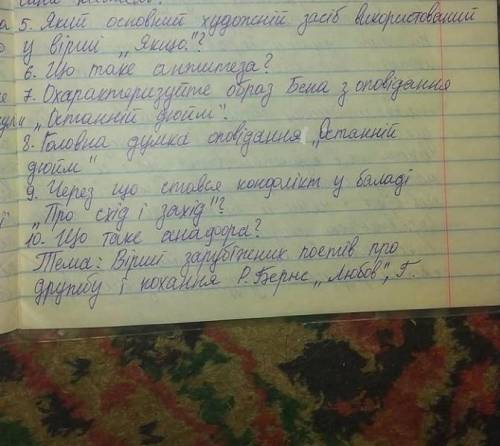 5. Який основний художній засіб використований
у вірші „Якщо."?
6. Що таке антитеза?
7. Охарактеризуйте образ Бена з оповідання
„Останній дюйм".
8. Головна думка оповідання „Останній
дюйм"
9. Через що стався конфлікт у баладі
„Про схід і захід"?
10. Що таке анафора?
Тема: Вірші зарубіжних поетів про
дружбу і кохання Р. Бернс „Любов", Г.